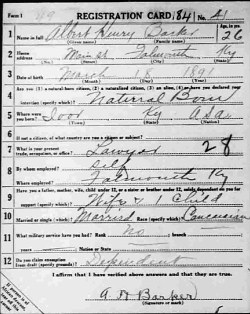 Form 1 REGISTRATION CARD No. 41
1 Name in full Albert Henry Barker Age, in yrs. 26
(Given name) (Family name)
2 Home address Main St Falmouth Ky
(No.) (Street) (City) (State)
3 Date of birth March
(Month) (Day) (Year)
4 Are you (1) a natural-born citizen, (2) a naturalized citizen, (3) an alien, (4) or have you declared your intention (specify which)? Natural Born
5 Where were you born? Ky
(Town) (State) (Nation)
6 If not a citizen, of what country are you a citizen or subject?
7 What is your present trade, occupation, or office? Lawyer 28
8 By whom employed? Self
Where employed? Falmouth Ky
9 Have you a father, mother, wife, child under 12, or a sister or brother under 12, solely dependent on you for support (specify which)? Wife & 1 Child
10 Married or single (which)? Married Race (specify which)? Caucasian
11 What military service have you had? Rank No branch
years Nation or State
12 Do you claim exemption from draft (specify grounds)? Dependent
I affirm that I have verified above answers and that they are true.
A H Barker
(Signature or mark)